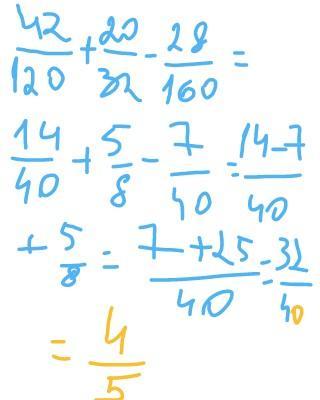 42/120 + 20/32 - 28/160 =
14/40 + 5/8 - 7/40 = 14-7/40
+ 5/8 = 7+25/40 = 32/40
= 4/5